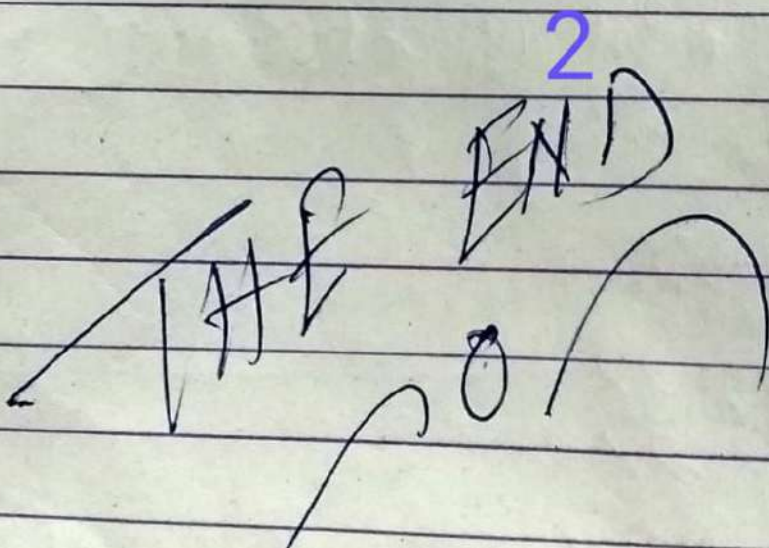 2
THE END